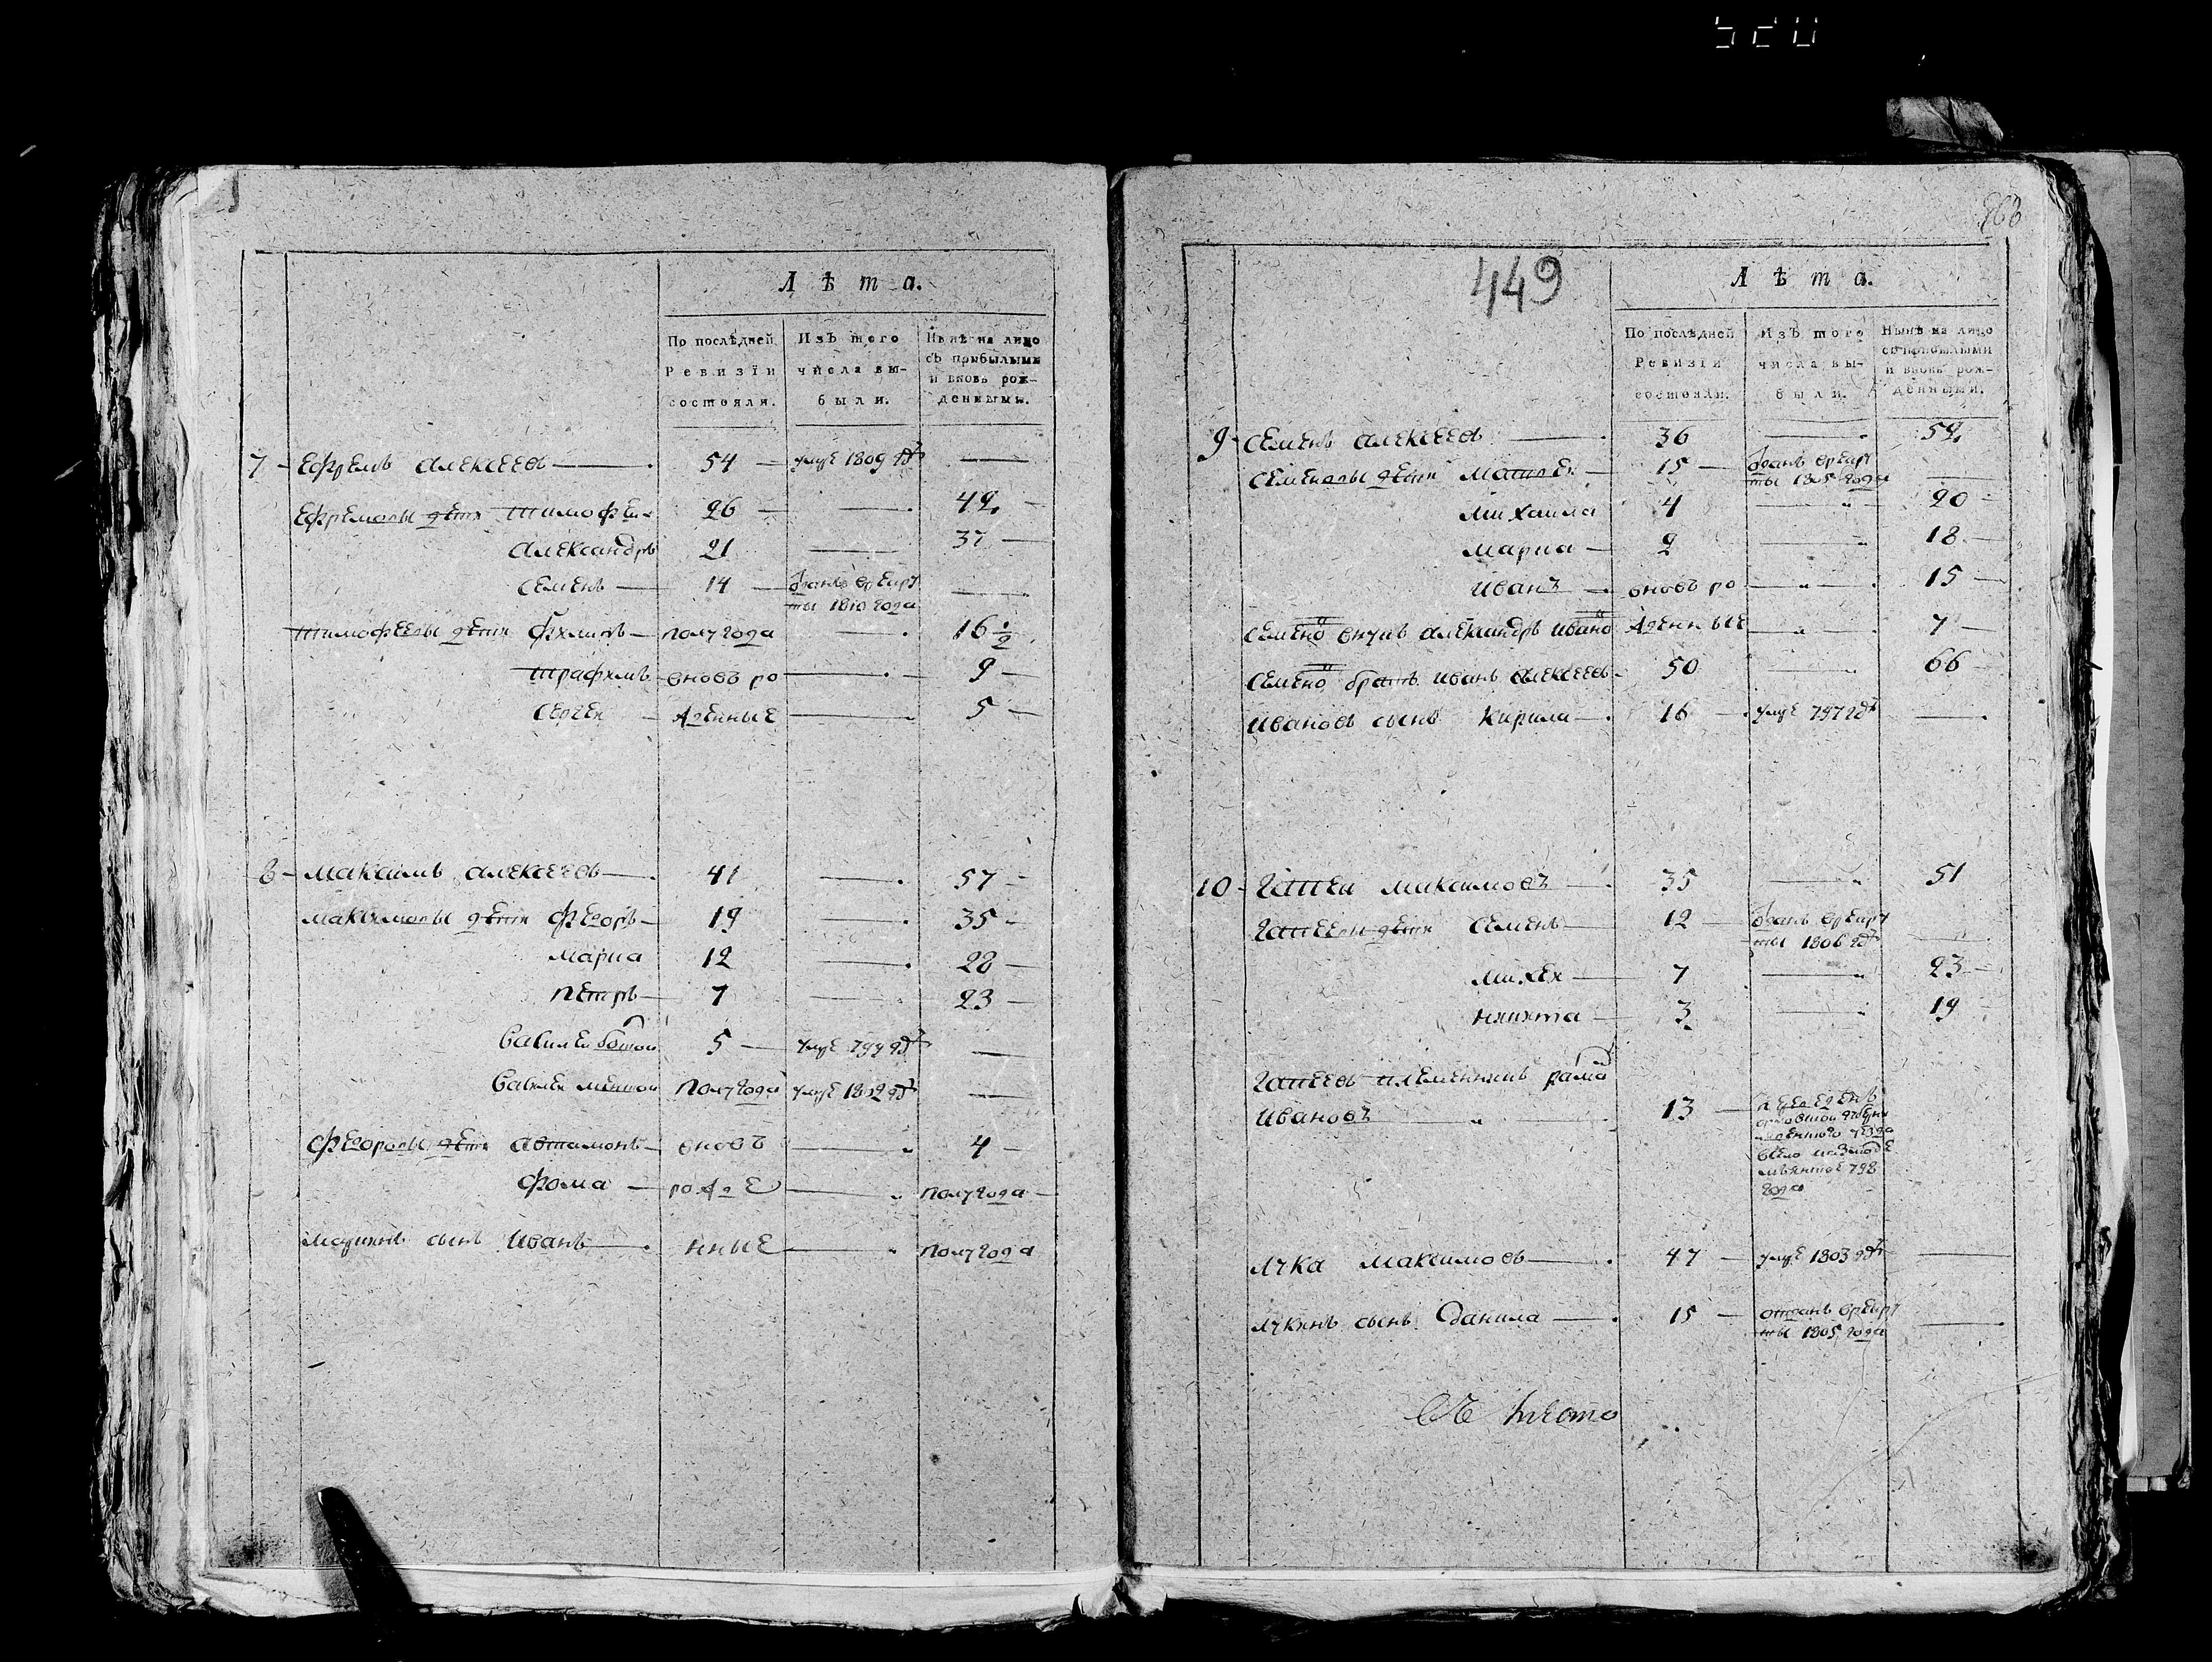 Лѣта.
По послѣдней Ревизїи состояли.
Изъ того числа выбыли.
Нынѣ на лицо съ прибылыми и вновь рожденными.
7 Ефремъ алексеевъ 54 умре 1809 год
Ефремовы дети тимофеи 26 42
александръ 21 37
семенъ 14 отданъ врекру
ты 1810 года
тимофеевы дети филипъ полугода 16 1/2
трафимъ вновъ ро 9
сергеи жденные 5
8 максимъ алексеевъ 41 57
максимовы дети федоръ 19 35
мариа 12 28
петръ 7 23
василеи болшои 5 умре 799 год
василеи меншои полугода умре 1802 год
федоровы дети автамонъ вновъ 4
фома рожде полугода
сынъ иванъ нные полугода
266
449
Лѣта.
По послѣдней Ревизїи состояли.
Изъ того числа выбыли.
Нынѣ на лицо съ прибылыми и вновь рожденными.
9 семенъ алексеевъ 36 52
семеновы дети матвеи 15 отданъ врекру
ты 1805 года
михаила 4 20
мариа 2 18
иванъ вновъ ро 15
семено внукъ александръ ивано жденные 7
семено братъ иванъ алексеевъ 50 66
ивановъ сынъ кирила 16 умре 797 год
10 гатеи максимовъ 35 51
гатеевы дети семенъ 12 отданъ врекру
ты 1806 год
михеи 7 23
никита 3 19
гатеевъ племянникъ рама
ивановъ 13 переведенъ
года
лука максимовъ 47 умре 1803 год
лукинъ сынъ данила 15 отданъ врекру
ты 1805 года